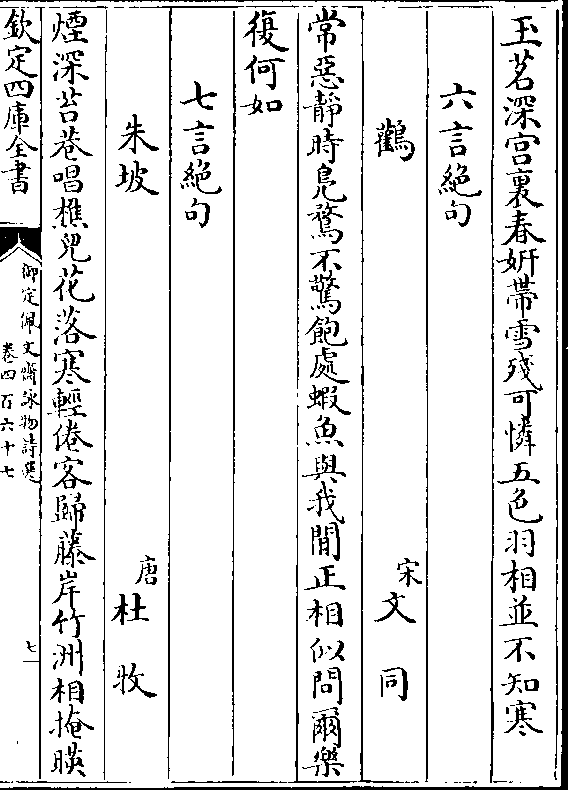 玉茗深宮裏春妍帶雪殘可憐五色羽相並不知寒
六言絶句
鸛 宋文同
常惡靜時鳬鶩不驚飽處蝦魚與我閒正相似問爾樂
復何如
七言絶句
朱坡 唐杜牧
煙深苔巷唱樵兒花落寒輕倦客歸藤岸竹洲相掩映
欽定四庫全書
御定佩文齋詠物詩選
卷四百六十七
七